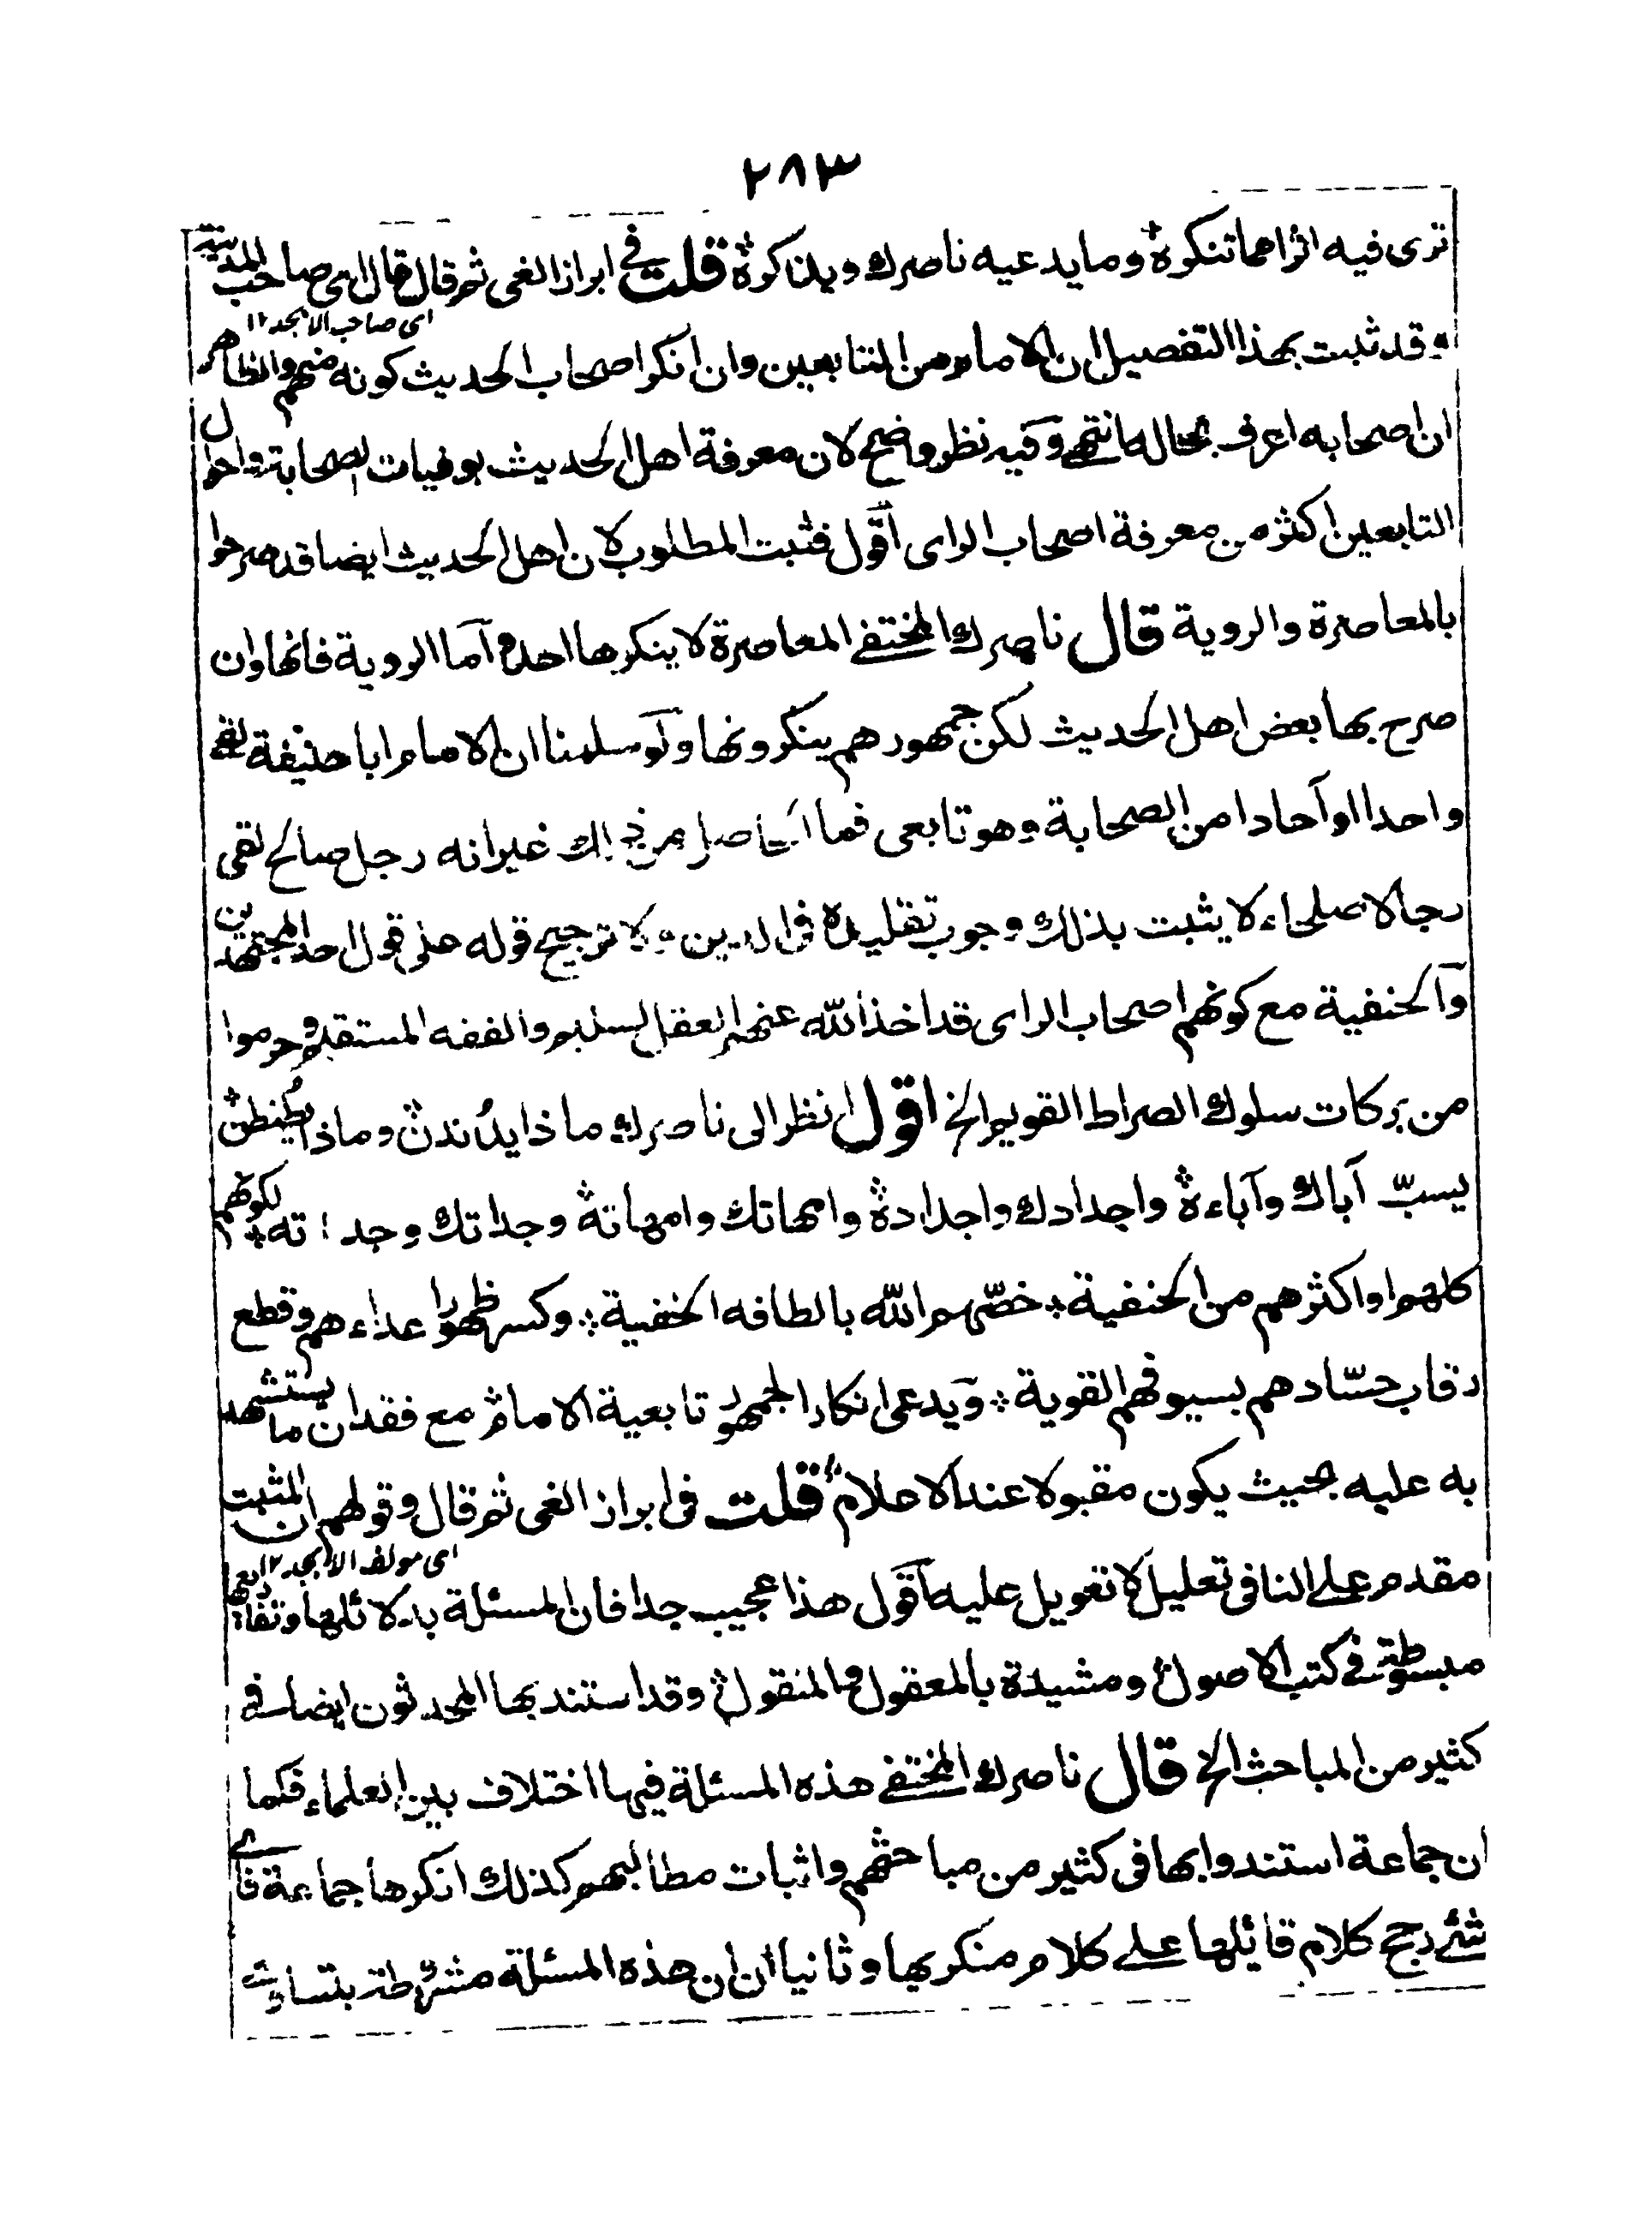 ٢٨٣
ترى فيه اثرا مما تنكره وما يدعيه ناصرك ويذكره قلت في ابراز الغي ثم قال قال اي صاحب المدينة
اي صاحب الابجد ١٢
وقد ثبت بهذا التفصيل ان الامام من التابعين وان انكر اصحاب الحديث كونه منهم والظاهر
ان اصحابه اعرف بحاله انتهى وفيه نظر واضح لان معرفة اهل الحديث بوفيات الصحابة واحوال
التابعين اكثر من معرفة اصحاب الراى اقول فثبت المطلوب لان اهل الحديث ايضا قد صرحوا
بالمعاصرة والروية قال ناصرك المختفي المعاصرة لا ينكرها احد واما الروية فانها وان
صرح بها بعض اهل الحديث لكن جمهورهم ينكرونها ولو سلمنا ان الامام ابا حنيفة لقي
واحدا او آحادا من الصحابة وهو تابعى فما الحاصل من ذلك غير انه رجل صالح لقى
رجالا صلحاء لا يثبت بذلك وجوب تقليده في الدين ولا ترجيح قوله على قول احد المجتهدين
والحنفية مع كونهم اصحاب الراى قد اخذ الله عنهم العقل السليم والفقه المستقيم وحرموا
من بركات سلوك الصراط القويم الخ اقول انظر الى ناصرك ماذا يدندن وماذا يطنطن
يسبّ آباك وآباءه واجدادك واجداده وامهاتك وامهاته وجداتك وجداته لكونهم
كلهم او اكثرهم من الحنفية خصّهم الله بالطافه الخفية وكسر ظهور اعداءهم وقطع
رقاب حسّادهم بسيوفهم القوية ويدعى انكار الجمهور تابعية الامام مع فقدان ما يستشهد
به عليه بحيث يكون مقبولا عند الاعلام قلت في ابراز الغي ثم قال وقولهم ان المثبت
اي مولف الابجد ١٢
مقدم على النافي تعليل لا تعويل عليه اقول هذا عجيب جدا فان المسئلة بدلائلها وتفاريعها
مبسوطة في كتب الاصول ومشيدة بالمعقول والمنقول وقد استند بها المحدثون ايضا في
كثير من المباحث الخ قال ناصرك المختفي هذه المسئلة فيها اختلاف بين العلماء فكما
ان جماعة استندوا بها في كثير من مباحثهم واثبات مطالبهم كذلك انكرها جماعة فاي
شئ رجح كلام قائلها على كلام منكريها وثانيا ان هذه المسئلة مشرطة بتساوي